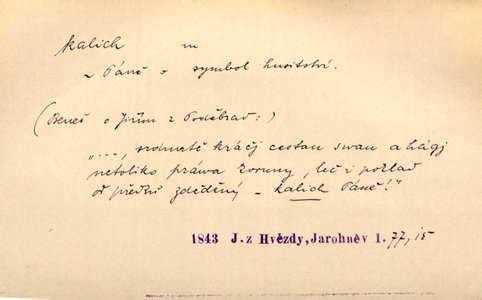 kalich m
~ Páně o symbol husitství.
(Beneš o Jiřím z Poděbrad:)
„..., srdnatě kráčj cestau swau a hágj
netoliko práwa koruny, leč i poklad
od předků zděděný – kalich Páně!"
1843 J. z Hvězdy, Jarohněv 1. 77, 15